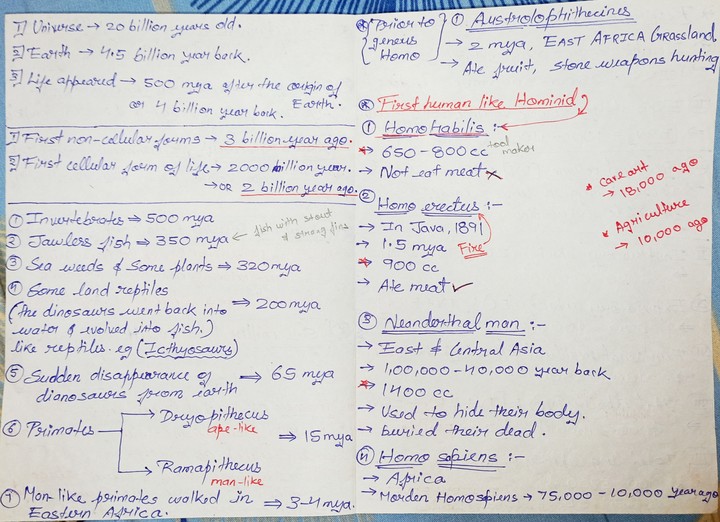 1] Universe → 20 billion years old.
2] Earth → 4.5 billion year back.
3] Life appeared → 500 mya after the origin of Earth.
or 4 billion year back.
1] First non-cellular forms → 3 billion year ago.
2] First cellular form of life → 2000 million year.
→ or 2 billion year ago.
① Invertebrates ⇒ 500 mya
② Jawless fish ⇒ 350 mya ← fish with stout & strong fins
③ Sea weeds & Some plants ⇒ 320 mya
④ Some land reptiles
(the dinosaurs went back into ⇒ 200 mya
water & evolved into fish.)
like reptiles. eg (Icthyosaurs)
⑤ Sudden disappearance of ⇒ 65 mya
dianosaurs from earth
⑥ Primates → Dryopithecus
ape-like
⇒ 15 mya
→ Ramapithecus
man-like
⑦ Man-like primates walked in ⇒ 3-4 mya.
Eastern Africa.
* Prior to geneus Homo
① Austrolophithecines
→ 2 mya, EAST AFRICA Grassland.
→ Ate fruit, stone weapons hunting
* First human like Hominid
① Homo habilis :-
→ 650-800 cc tool maker
→ Not eat meat ×
② Homo erectus :-
→ In Java, 1891
→ 1.5 mya Fire
→ 900 cc
→ Ate meat ✓
* Cave art
→ 18,000 ago
* Agriculture
→ 10,000 ago
③ Neanderthal man :-
→ East & Central Asia
→ 1,00,000-40,000 year back
→ 1400 cc
→ Used to hide their body.
→ buried their dead.
④ Homo sapiens :-
→ Africa
→ Morden Homospiens → 75,000-10,000 year ago